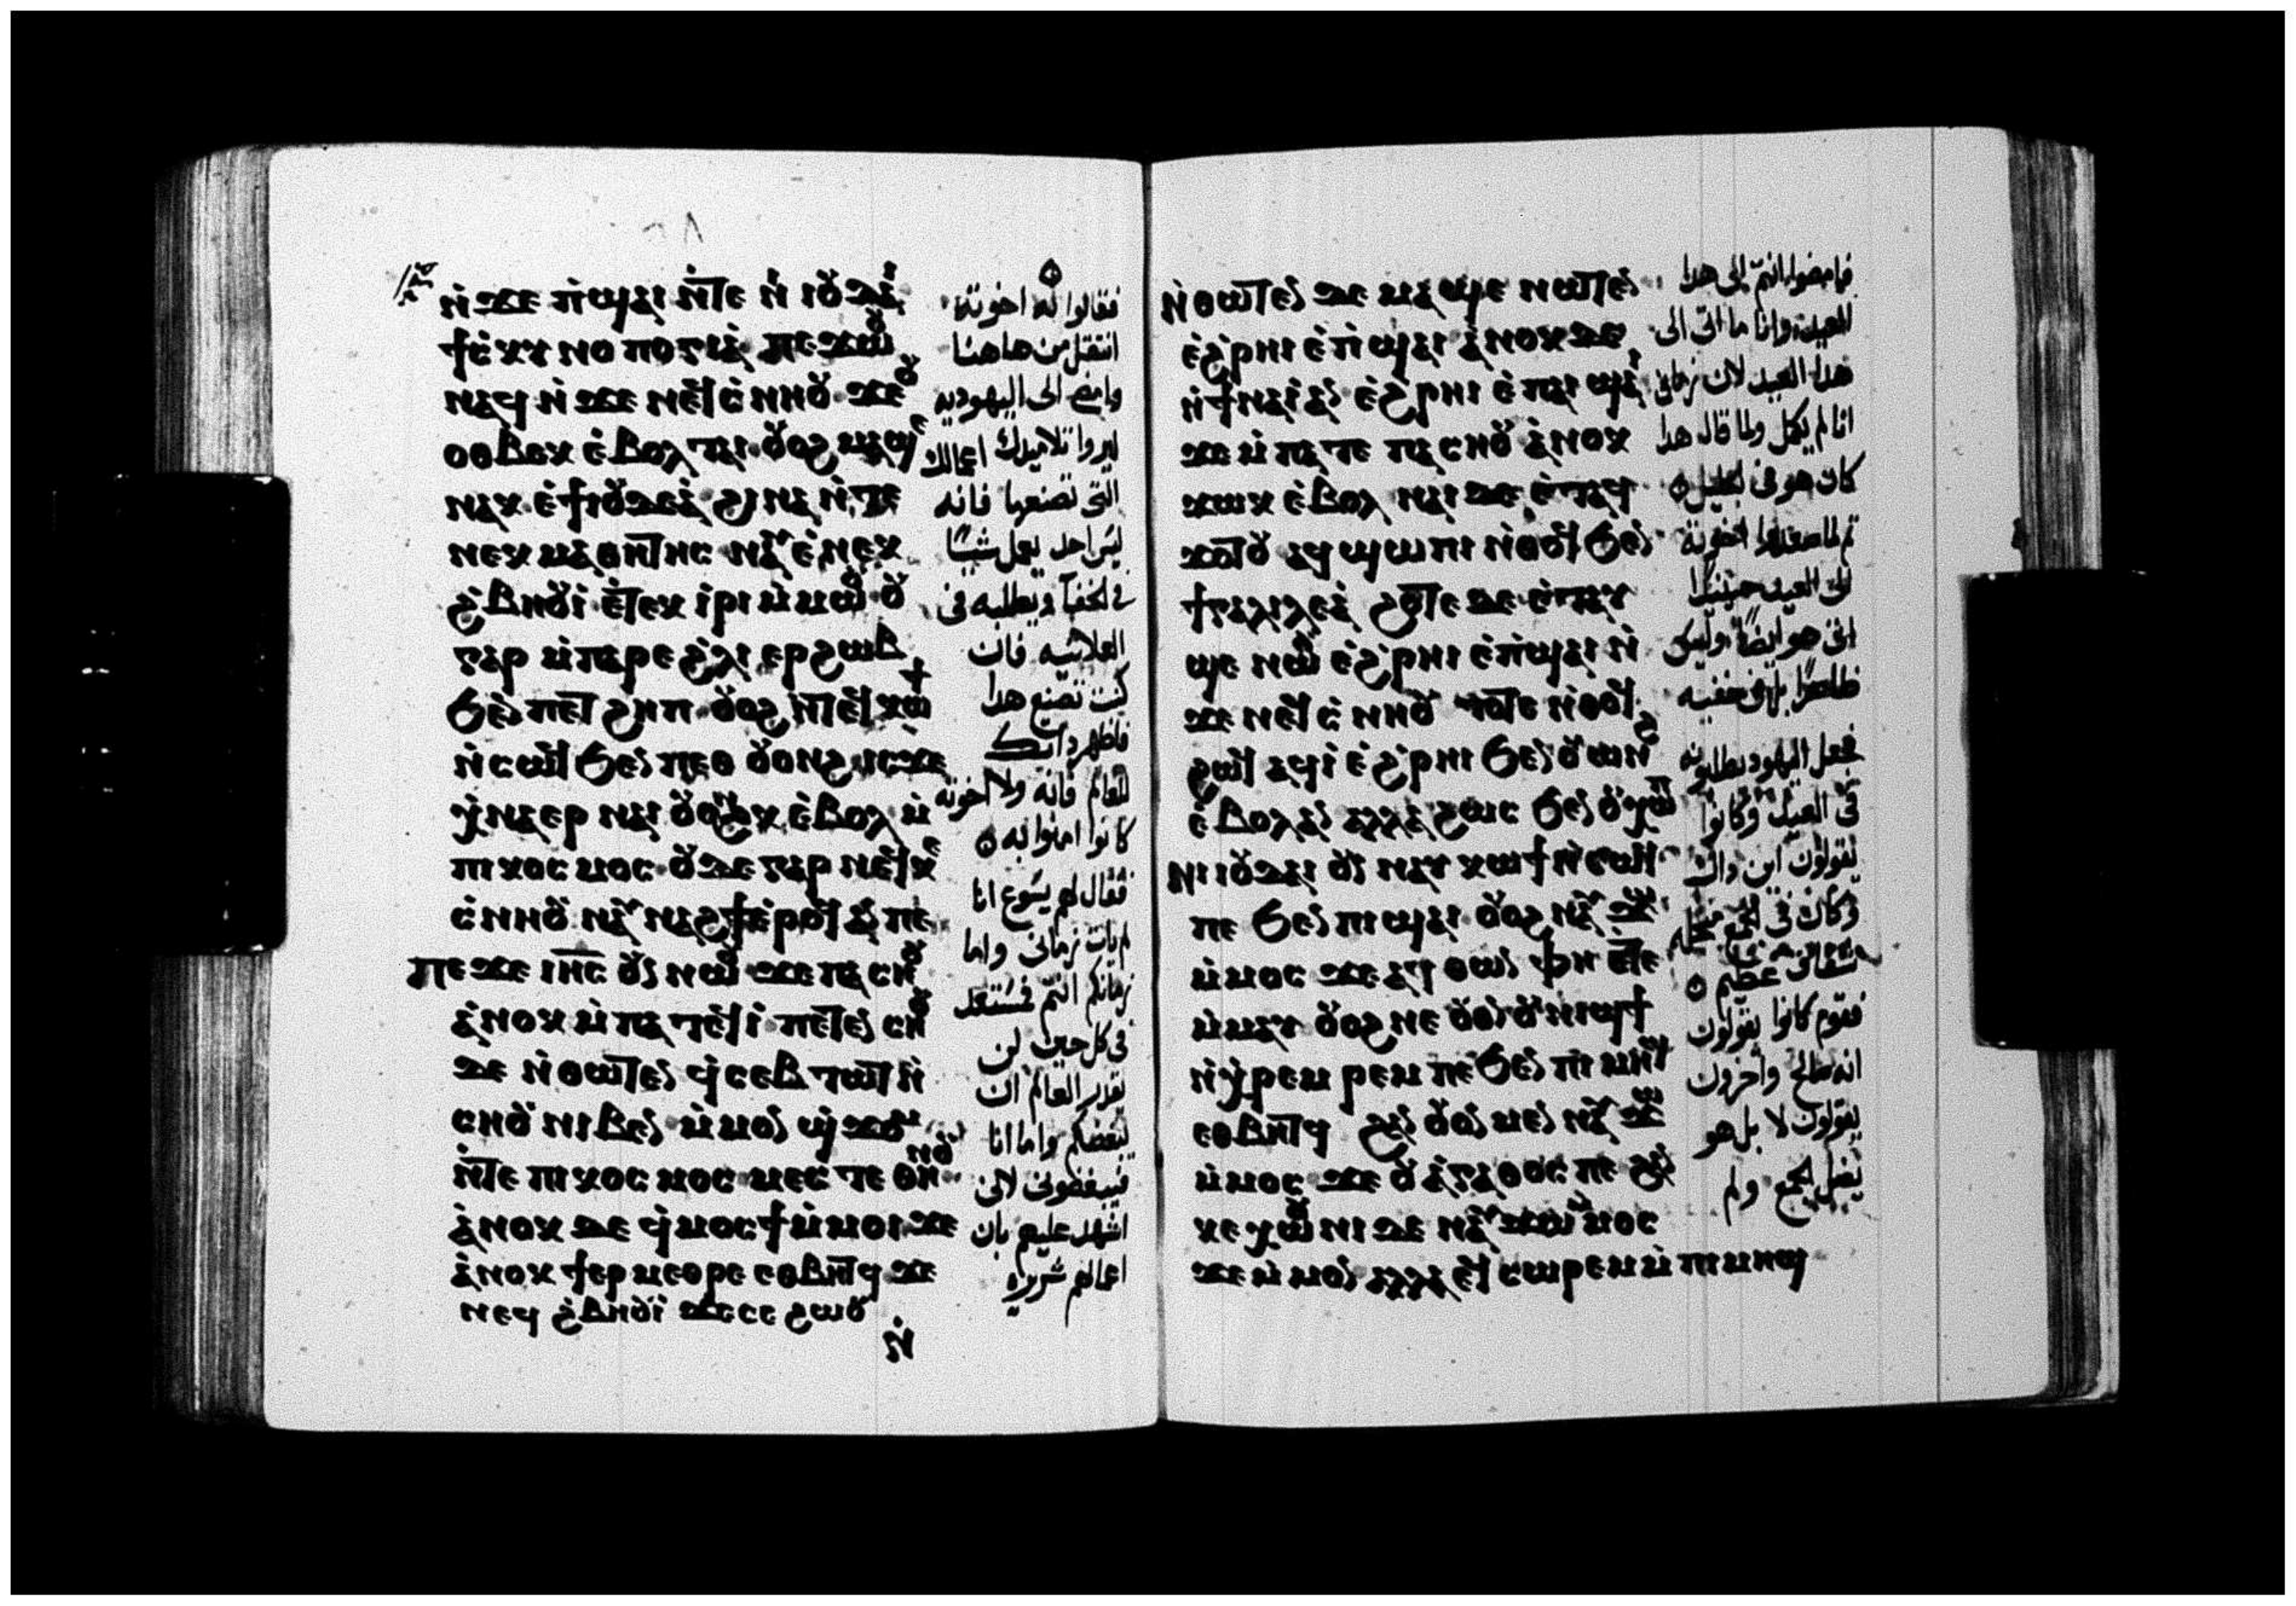 ⲛ̀ϫⲉ ⲡ̀ϣⲁⲓ ⲛ̀ⲧⲉ ⲛ̀ⲓⲟⲩⲇⲁⲓ
ϯⲥⲕⲩⲛⲟⲡⲟⲅⲓⲁ ⲡⲉϫⲱⲟⲩ
ⲛⲁϥ ⲛ̀ϫⲉ ⲛⲉϥⲥⲛⲏⲟⲩ ϫⲉ ⲟⲩ
ⲟⲑⲃⲉⲕ ⲉ̀ⲃⲟⲗ ⲧⲁⲓ ⲟⲩⲟϩ ⲙⲁϣⲉ
ⲛⲁⲕ ⲉ̀ϯⲓⲟⲩⲇⲉⲁ̀ ϩⲓⲛⲁ ⲛ̀ⲧⲉ
ⲛⲉⲕ ⲙⲁⲑⲏⲧⲏⲥ ⲛⲁⲩ ⲉ̀ⲛⲉⲕ
ϩ̀ⲃⲏⲟⲩⲓ ⲉⲧⲉⲕ ⲓⲣⲓ ⲙ̀ⲙⲱⲟⲩ ⲟⲩ
ⲅⲁⲣ ⲙ̀ⲡⲁⲣⲉ ϩ̀ⲗⲓ ⲉⲣϩⲱⲃ
ϧⲉⲛ ⲡⲉⲧ ϩⲏⲡ ⲟⲩⲟϩ ⲛ̀ⲧⲉϥⲕⲱϯ
ⲛ̀ⲥⲱϥ ϧⲉⲛ ⲡⲉⲑ ⲟⲩⲟⲛϩ ⲓⲥϫⲉ
ⲭ̀ⲛⲁⲉⲣ ⲛⲁⲓ ⲟⲩⲟⲛϩⲕ ⲉ̀ⲃⲟⲗ ⲙ̀
ⲡⲓⲕⲟⲥⲙⲟⲥ ⲟⲩⲇⲉ ⲅⲁⲣ ⲛⲉϥⲕⲉ
ⲥ̀ⲛⲏⲟⲩ ⲛⲁⲩ ⲛⲁϩϯ ⲉ̀ⲣⲟϥ ⲁⲛ ⲡⲉ
ⲡⲉϫⲉ ⲓⲏⲥ ⲟⲩⲛ ⲛⲱⲟⲩ ϫⲉ ⲡⲁⲥⲏⲟⲩ
ⲁ̀ⲛⲟⲕ ⲙ̀ⲡⲁⲧⲉϥⲓ̀ ⲡⲉⲧⲉⲛ ⲥⲏⲟⲩ
ⲇⲉ ⲛ̀ⲑⲱⲧⲉⲛ ϥ̀ⲥⲉⲃⲧⲱⲧ ⲛ̀
ⲥⲏⲟⲩ ⲛⲓⲃⲉⲛ ⲙ̀ⲙⲟⲛ ϣ̀ϫⲟⲙ
ⲛ̀ⲧⲉ ⲡⲓⲕⲟⲥⲙⲟⲥ ⲙⲉⲥⲧⲉ ⲑⲏⲛⲟⲩ
ⲁ̀ⲛⲟⲕ ⲇⲉ ϥ̀ⲙⲟⲥϯ ⲙ̀ⲙⲟⲓ ϫⲉ
ⲁ̀ⲛⲟⲕ ϯⲉⲣⲙⲉⲑⲣⲉ ⲉⲑⲃⲏⲧϥ ϫⲉ
ⲛⲉϥ ϩ̀ⲃⲏⲟⲩⲓ ϫⲉⲥⲉ ϩⲱⲟⲩ
ⲛ̀
فقالوا له اخوته
انتقل من هاهنا
وامض الى اليهوديه
ليروا تلاميدك اعمالك
التى تصنعها فانه
ليس احد يعمل شيًا
فى الخفا ويطلبه فى
العلانيه فان
كنت تصنع هدا
فاظهر داتك
للعالم فانه ولا اخوته
كانوا امنوا به
فقال لهم يسوع انا
لم يات زمانى واما
زمانكم انتم فستعد
فى كل حين لن
يقدر العالم ان
يبغضكم واما انا
فيبغضونى لانى
اشهد عليهم بان
اعمالهم شريره
ⲛ̀ⲑⲱⲧⲉⲛ ⲇⲉ ⲙⲁϣⲉ ⲛⲱⲧⲉⲛ
ⲉ̀ϩ̀ⲣⲏⲓ ⲉ̀ⲡ̀ϣⲁⲓ ⲁ̀ⲛⲟⲕ ⲇⲉ
ⲛ̀ϯⲛⲁⲓ̀ ⲁⲛ ⲉ̀ϩ̀ⲣⲏⲓ ⲉ̀ⲡⲁⲓ ϣⲁⲓ
ϫⲉ ⲙ̀ⲡⲁⲧⲉ ⲡⲁⲥⲏⲟⲩ ⲁ̀ⲛⲟⲕ
ϫⲱⲕ ⲉ̀ⲃⲟⲗ ⲛⲁⲓ ⲇⲉ ⲉ̀ⲧⲁϥ
ϫⲟⲧⲟⲩ ⲁϥϣⲱⲡⲓ ⲛ̀ⲑⲟϥ ϧⲉⲛ
ϯⲅⲁⲗⲓⲗⲉⲁ̀ ϩⲟⲧⲉ ⲇⲉ ⲉ̀ⲧⲁⲩ
ϣⲉ ⲛⲱⲟⲩ ⲉ̀ϩ̀ⲣⲏⲓ ⲉ̀ⲡ̀ϣⲁⲓ ⲛ̀
ϫⲉ ⲛⲉϥⲥ̀ⲛⲏⲟⲩ ⲧⲟⲧⲉ ⲛ̀ⲑⲟϥ
ϩⲱϥ ⲁϥⲓ ⲉ̀ϩ̀ⲣⲏⲓ ϧⲉⲛ ⲟⲩⲱⲛϩ
ⲉ̀ⲃⲟⲗ ⲁⲛ ⲁⲗⲗⲁ ϩⲱⲥ ϧⲉⲛ ⲟⲩⲭⲱⲡ
ⲛⲓⲓⲟⲩⲇⲁⲓ ⲟⲩⲛ ⲛⲁⲩ ⲕⲱϯ ⲛ̀ⲥⲱϥ
ⲡⲉ ϧⲉⲛ ⲡⲓϣⲁⲓ ⲟⲩⲟϩ ⲛⲁⲩ ϫⲱ
ⲙ̀ⲙⲟⲥ ϫⲉ ⲁϥ ⲑⲱⲛ ⲫⲏ ⲉⲧⲉ
ⲙ̀ⲙⲁⲩ ⲟⲩⲟϩ ⲛⲉ ⲟⲩⲟⲛ ⲟⲩⲛⲓϣϯ
ⲛ̀ⲭ̀ⲣⲉⲙⲣⲉⲙ ⲡⲉ ϧⲉⲛ ⲡⲓⲙⲏϣ
ⲉⲑⲃⲏⲧϥ ϩⲁⲛ ⲟⲩⲟⲛ ⲙⲉⲛ ⲛⲁⲩ ϫⲱ
ⲙ̀ⲙⲟⲥ ϫⲉ ⲟⲩ ⲁ̀ⲅⲁⲑⲟⲥ ⲡⲉ ϩⲁⲛ
ⲕⲉⲭⲱⲟⲩⲛⲓ ⲇⲉ ⲛⲁⲩ ϫⲱ ⲙ̀ⲙⲟⲥ
ϫⲉ ⲙ̀ⲙⲟⲛ ⲁⲗⲗⲁ ⲉϥ ⲥⲱⲣⲉⲙ ⲙ̀ⲡⲓⲙⲏϣ
فامضوا انتم الى هدا
العيد وانا ما اتى الى
هدا العيد لان زمانى
انا لم يكمل ولما قال هدا
كان هو فى الجليل
ثم لما صعد اخوته
الى العيد حينيدًا
اتى هو ايضًا وليس
ظاهرًا بل فى خفيه
فجعل اليهود يطلبونه
فى العيد وكانوا
يقولون اين داك
وكان فى الجمع من اجله
شقاق عظيم
فقوم كانوا يقولون
انه صالح واخرون
يقولون لا بل هو
يضل الجمع ولم